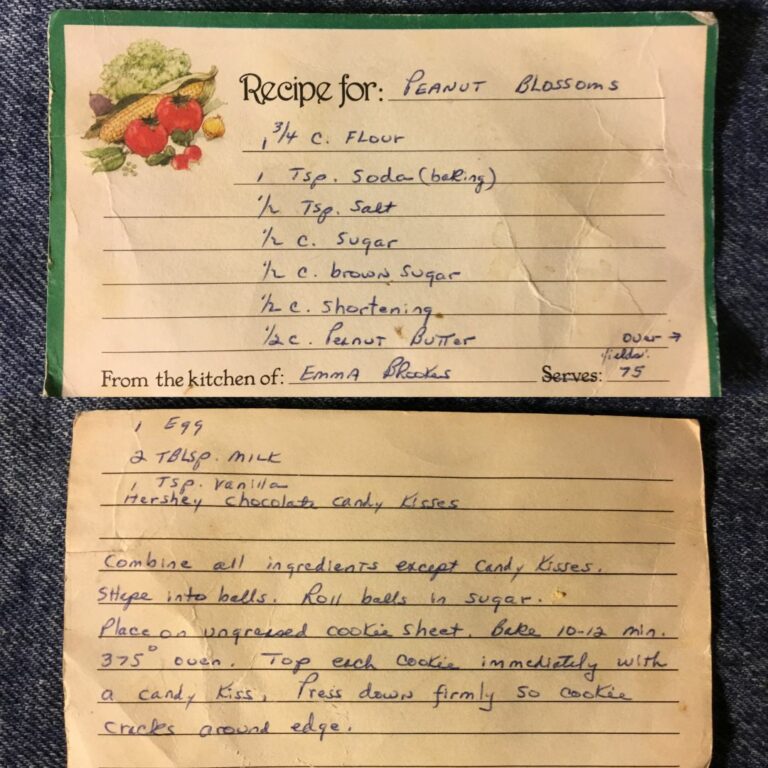 Recipe for: PEANUT BLOSSOMS
1 3/4 C. FLOUR
1 Tsp. Soda (baking)
1/2 Tsp. Salt
1/2 C. Sugar
1/2 C. brown Sugar
1/2 C. Shortening
1/2 C. PEANUT BUTTER
over →
From the kitchen of: EMMA BRookes
Serves: yields: 75
1 Egg
2 TBLSp. MILK
1 Tsp. Vanilla
Hershey chocolate candy Kisses
Combine all ingredients except Candy Kisses.
SHape into balls. Roll balls in sugar.
Place on ungreased cookie sheet. Bake 10-12 min.
375° oven. Top each cookie immediately with
a candy Kiss. Press down firmly so cookie
cracks around edge.